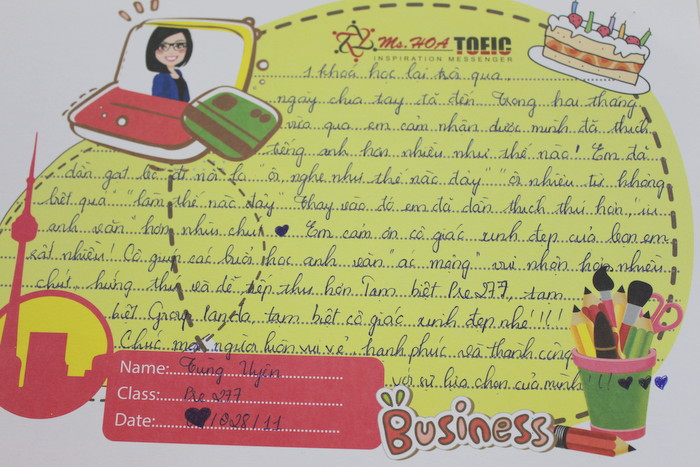 Ms. HOA TOEIC
INSPIRATION MESSENGER
1 khoá học lại trôi qua.
ngày chia tay đã đến. Trong hai tháng
vừa qua em cảm nhận được mình đã thích
tiếng anh hơn nhiều như thế nào! Em đã
dần gạt bỏ đi nỗi lo "ôi nghe như thế nào đây" "ôi nhiều từ không
biết quá" "làm thế nào đây" thay vào đó em đã dần thích thú hơn, "ui
anh văn" hơn nhìu chu! Em cảm ơn cô giáo xinh đẹp của bọn em
rất nhiều! Cô giúp các buổi học anh văn "ác mộng" vui nhộn hơn nhiều
chút, hứng thú và dễ tiếp thu hơn. Tạm biệt Pre 277, tạm
biệt Group Panda, tạm biệt cô giáo xinh đẹp nhé!!!!
Chúc mọi người luôn vui vẻ, hạnh phúc và thành công
với sự lựa chọn của mình!!!
Name: Tùng Uyên
Class: Pre 277
Date: /028/11
Business